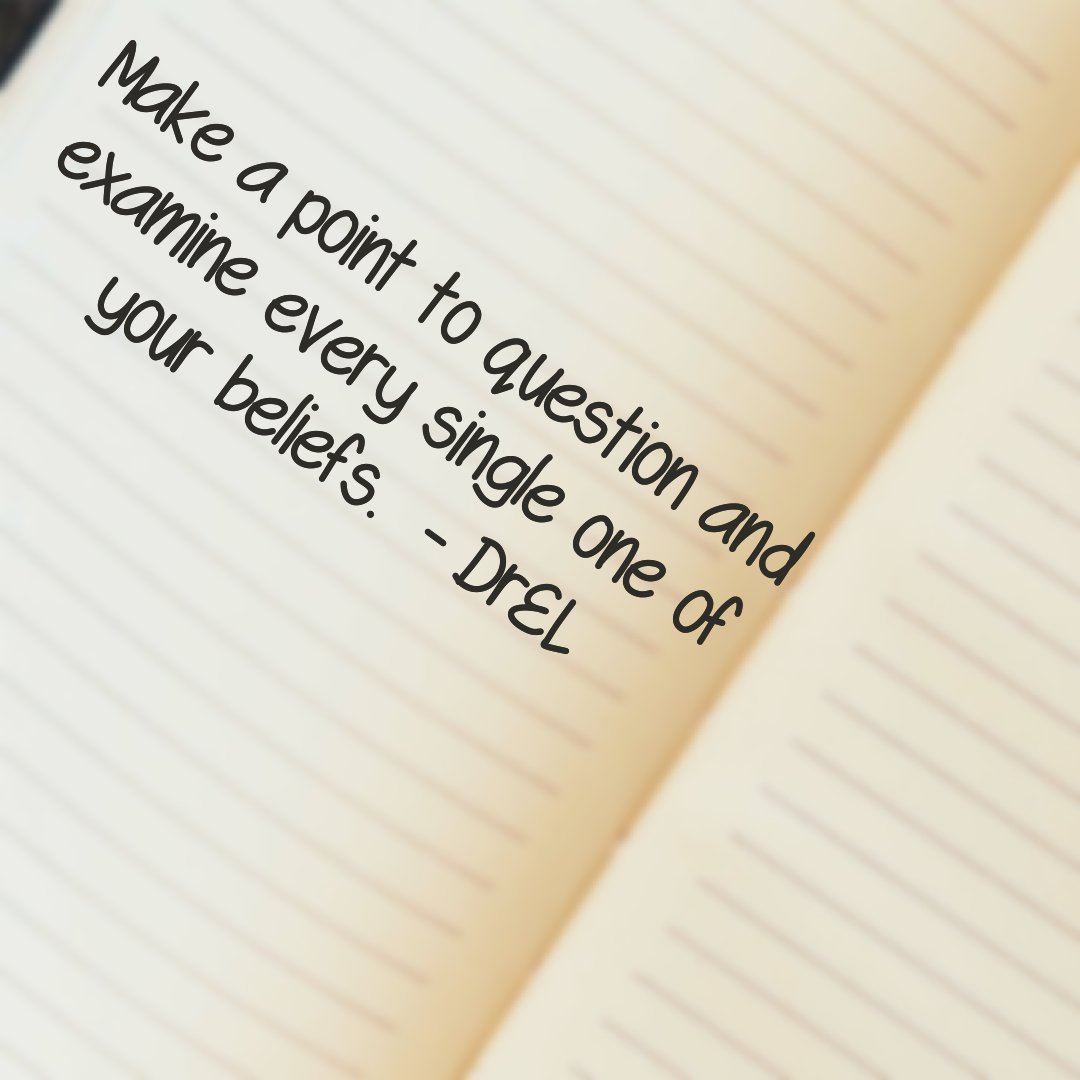 Make a point to question and
examine every single one of
your beliefs. - DrEL